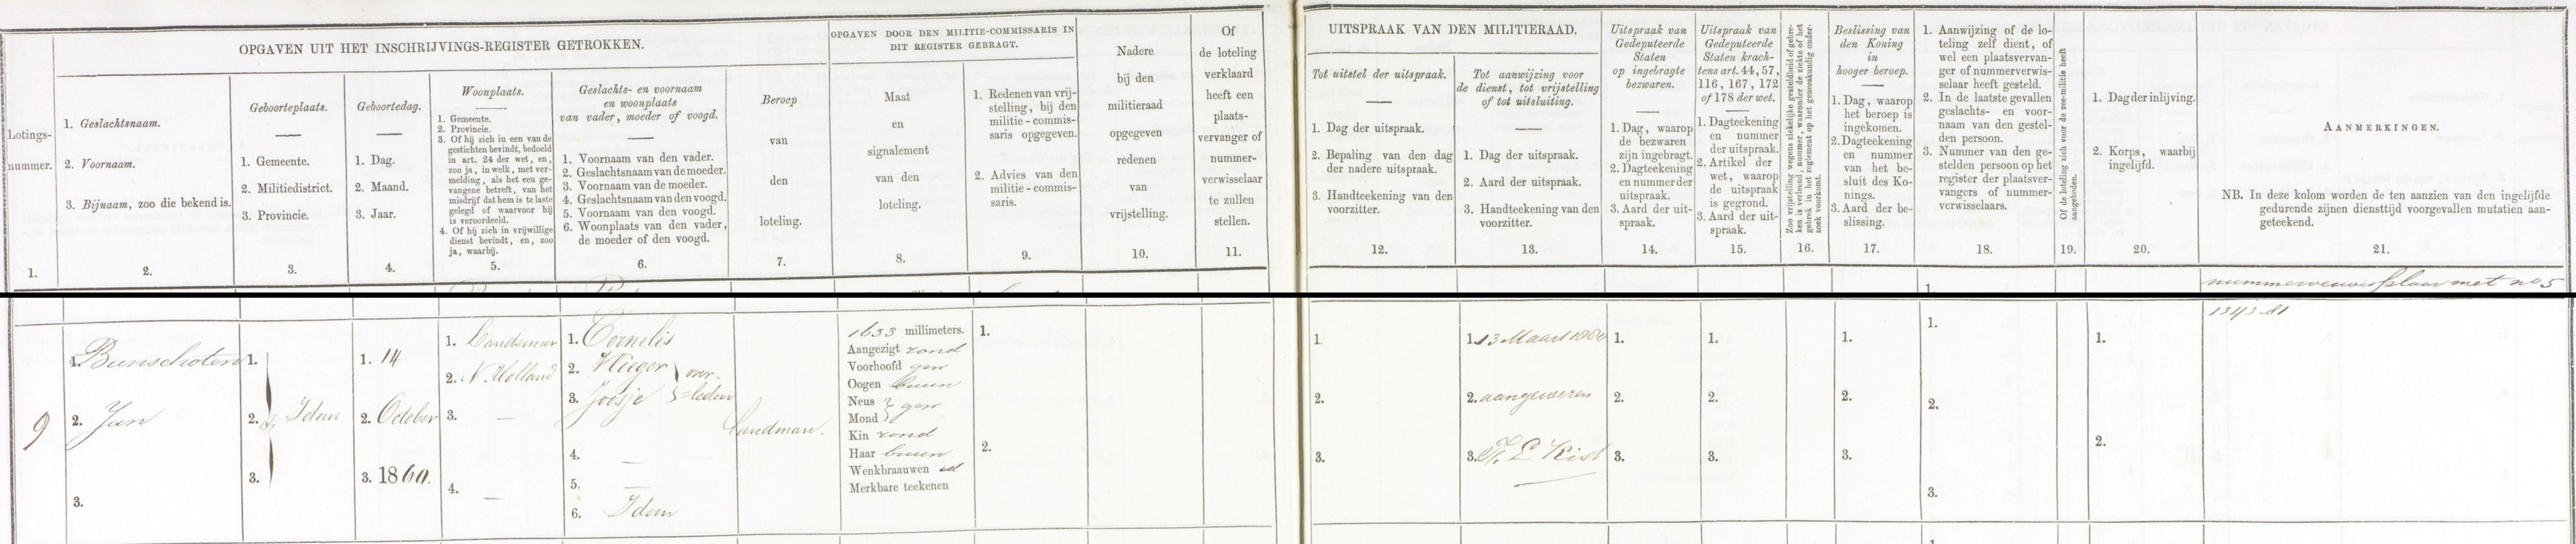 OPGAVEN UIT HET INSCHRIJVINGS-REGISTER GETROKKEN.
Lotings-
nummer.
1.
1. Geslachtsnaam.
2. Voornaam.
3. Bijnaam, zoo die bekend is.
2.
Geboorteplaats.
1. Gemeente.
2. Militiedistrict.
3. Provincie.
3.
Geboortedag.
1. Dag.
2. Maand.
3. Jaar.
4.
Woonplaats.
1. Gemeente.
2. Provincie.
3. Of hij zich in een van de
gestichten bevindt, bedoeld
in art. 24 der wet, en,
zoo ja, in welk, met ver-
melding, als het een ge-
vangene betreft, van het
misdrijf dat hem is te laste
gelegd of waarvoor hij
is veroordeeld.
4. Of hij zich in vrijwillige
dienst bevindt, en, zoo
ja, waarbij.
5.
Geslachts- en voornaam
en woonplaats
van vader, moeder of voogd.
1. Voornaam van den vader.
2. Geslachtsnaam van de moeder.
3. Voornaam van de moeder.
4. Geslachtsnaam van den voogd.
5. Voornaam van den voogd.
6. Woonplaats van den vader,
de moeder of den voogd.
6.
Beroep
van
den
loteling.
7.
OPGAVEN DOOR DEN MILITIE-COMMISSARIS IN
DIT REGISTER GEBRAGT.
Maat
en
signalement
van den
loteling.
8.
1. Redenen van vrij-
stelling, bij den
militie-commis-
saris opgegeven.
2. Advies van den
militie-commis-
saris.
9.
Nadere
bij den
militieraad
opgegeven
redenen
van
vrijstelling.
10.
Of
de loteling
verklaard
heeft een
plaats-
vervanger of
nummer-
verwisselaar
te zullen
stellen.
11.
UITSPRAAK VAN DEN MILITIERAAD.
Tot uitstel der uitspraak.
1. Dag der uitspraak.
2. Bepaling van den dag
der nadere uitspraak.
3. Handteekening van den
voorzitter.
12.
Tot aanwijzing voor
de dienst, tot vrijstelling
of tot uitsluiting.
1. Dag der uitspraak.
2. Aard der uitspraak.
3. Handteekening van den
voorzitter.
13.
Uitspraak van
Gedeputeerde
Staten
op ingebragte
bezwaren.
1. Dag, waarop
de bezwaren
zijn ingebragt.
2. Dagteekening
en nummer der
uitspraak.
3. Aard der uit-
spraak.
14.
Uitspraak van
Gedeputeerde
Staten krach-
tens art. 44, 57,
116, 167, 172
of 178 der wet.
1. Dagteekening
en nummer
der uitspraak.
2. Artikel der
wet, waarop
de uitspraak
is gegrond.
3. Aard der uit-
spraak.
15.
Zoo vrijstelling wegens ziekelijke gesteldheid of gebre-
ken is verleend, nummer, waaronder de ziekte of het
gebrek in het reglement op het geneeskundig onder-
zoek voorkomt.
16.
Beslissing van
den Koning
in
hooger beroep.
1. Dag, waarop
het beroep is
ingekomen.
2. Dagteekening
en nummer
van het be-
sluit des Ko-
nings.
3. Aard der be-
slissing.
17.
1. Aanwijzing of de lo-
teling zelf dient, of
wel een plaatsvervan-
ger of nummerverwis-
selaar heeft gesteld.
2. In de laatste gevallen
geslachts- en voor-
naam van den gestel-
den persoon.
3. Nummer van den ge-
stelden persoon op het
register der plaatsver-
vangers of nummer-
verwisselaars.
18.
Of de loteling zich voor de zee-militie heeft
aangeboden.
19.
1. Dag der inlijving.
2. Korps, waarbij
ingelijfd.
20.
AANMERKINGEN.
NB. In deze kolom worden de ten aanzien van den ingelijfde
gedurende zijnen diensttijd voorgevallen mutatien aan-
geteekend.
21.
met no 5
1.
9
1. Bunschoten
2. Jan
3.
1.
2. Idem
3.
1. 14
2. October
3. 1860.
1. Landsmeer
2. N. Holland
3. —
4. —
1. Cornelis
2. Vlieger } over-
3. Joosje } =leden
4. —
5. —
6. Idem
Landman.
1633 millimeters.
Aangezigt rond
Voorhoofd gew
Oogen bruin
Neus
Mond } gew
Kin rond
Haar bruin
Wenkbraauwen id
Merkbare teekenen
1.
2.
1.
2.
3.
1. 13 Maart 1880
2. aangewezen
3. Kist
1.
2.
3.
1.
2.
3.
1.
2.
3.
1.
2.
3.
1.
2.
1343-81
1.